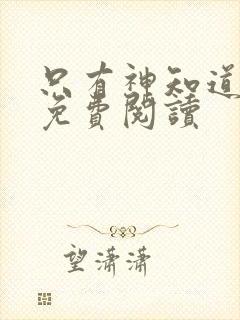 只有神知道
免費閱讀
望瀟瀟